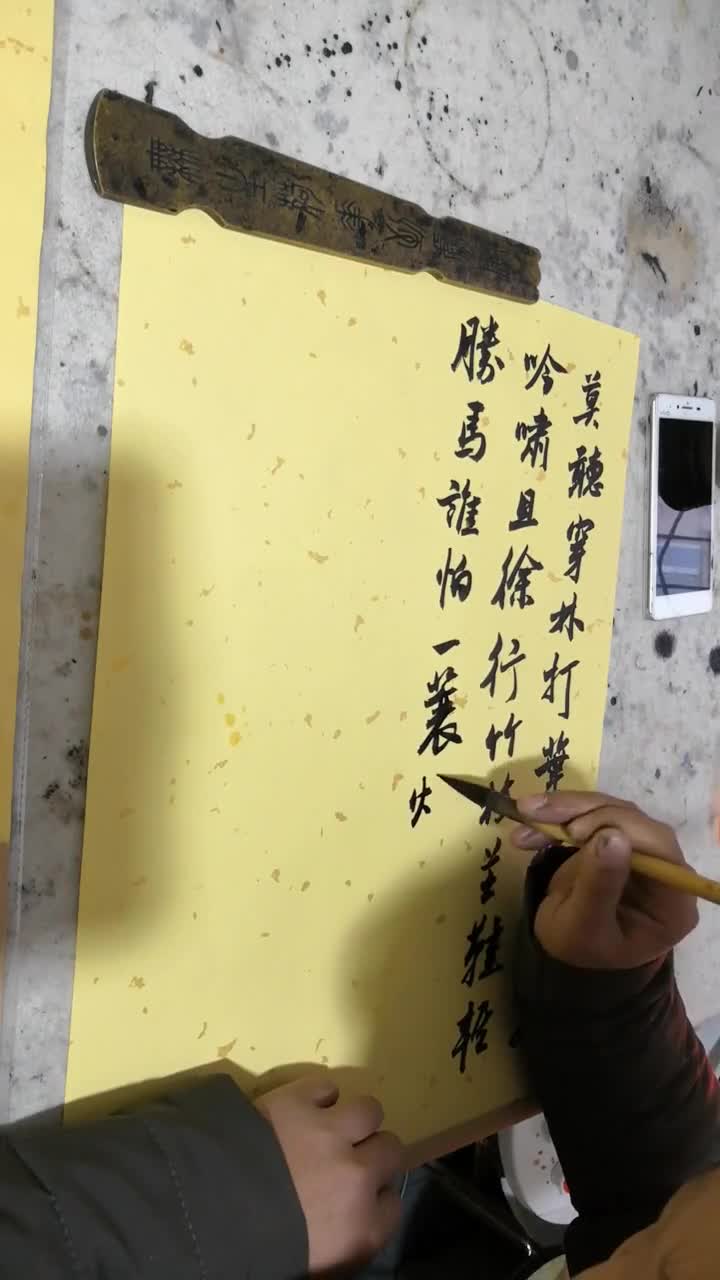 莫聽穿林打葉
吟嘯且徐行竹杖芒鞋輕
勝馬誰怕一蓑火